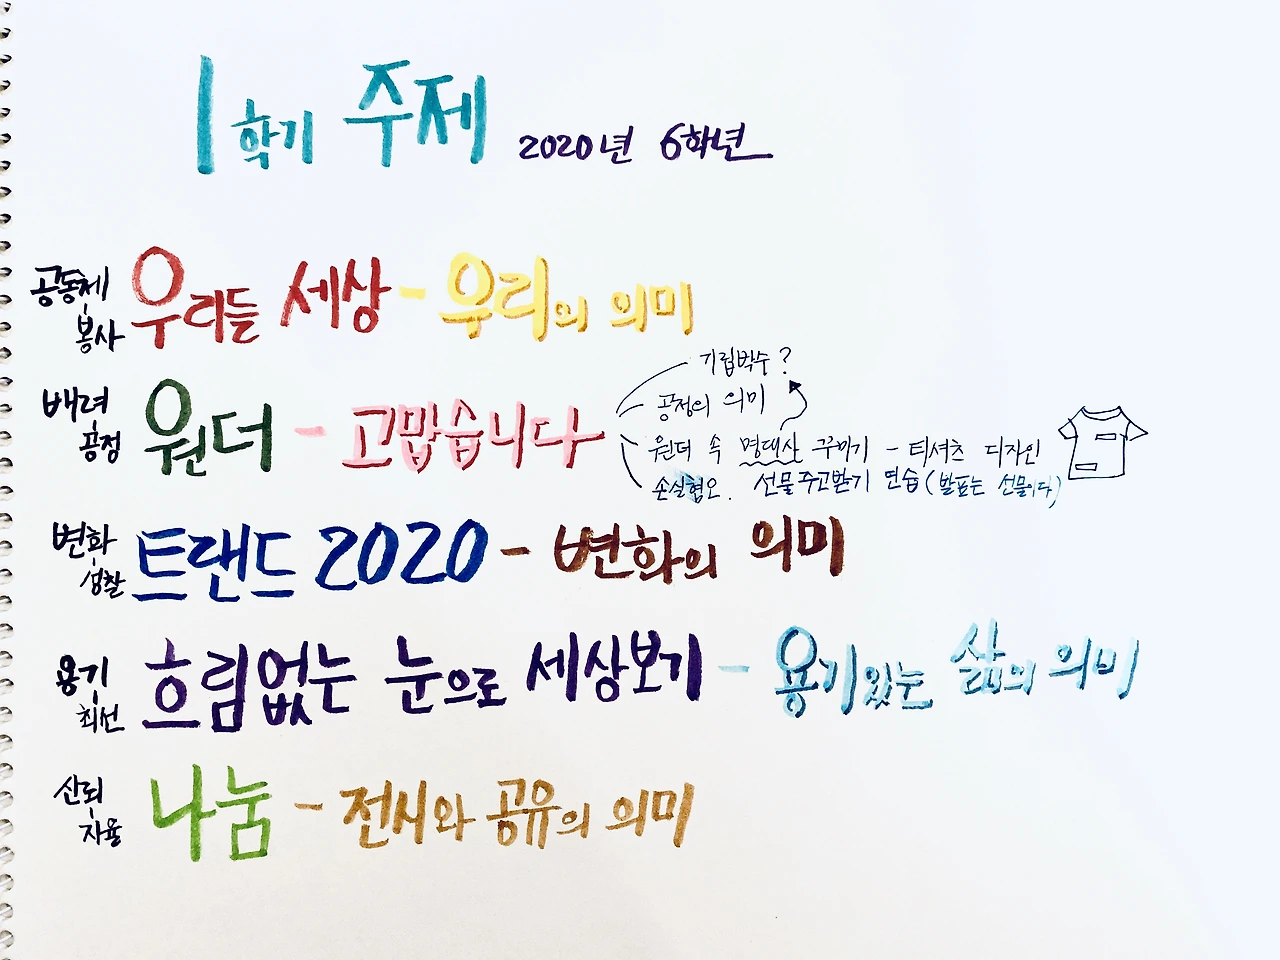 1학기 주제 2020년 6학년
공동체 봉사 우리들 세상 - 우리의 의미
기립박수?
공정의 의미
배려 공정 원더 - 고맙습니다
원더 속 명대사 꾸미기 - 티셔츠 디자인
손실혐오. 선물주고받기 연습(발표는 선물이다)
변화 성찰 트랜드 2020 - 변화의 의미
용기 최선 흐림없는 눈으로 세상보기 - 용기있는 삶의 의미
산뢰 자율 나눔 - 전시와 공유의 의미